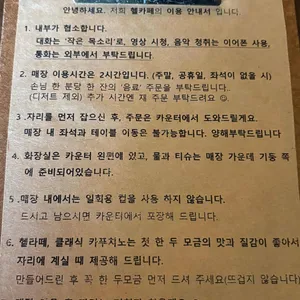 안녕하세요. 저희 헬카페의 이용 안내서 입니다
1. 내부가 협소합니다.
대화는 '작은 목소리'로, 영상 시청, 음악 청취는 이어폰 사용,
통화는 외부에서 부탁드립니다
2. 매장 이용시간은 2시간입니다. (주말, 공휴일, 좌석이 없을 시)
손님 한 분당 한 잔의 "음료" 주문을 부탁드립니다.
(디저트 제외) 추가 시간엔 재 주문 부탁드려요 ☺.
3. 자리를 먼저 잡으신 후, 주문은 카운터에서 도와드릴게요.
매장 내 좌석과 테이블 이동은 불가능합니다. 양해부탁드립니다
4. 화장실은 카운터 왼편에 있고, 물과 티슈는 매장 가운데 기둥 쪽
에 준비되어있습니다.
5. 매장 내에서는 일회용 컵을 사용 하지 않습니다.
드시고 남으시면 카운터에서 포장해 드립니다.
6. 헬라떼, 클래식 카푸치노는 첫 한 두 모금의 맛과 질감이 좋아서
자리에 계실 때 제공해 드립니다.
만들어드린 후 꼭 한 두모금 먼저 드셔 주세요(뜨겁지 않습니다)